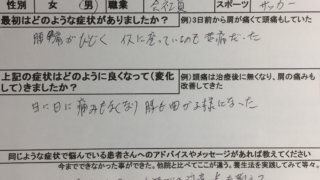 性別 女 (男) 職業 会社員 スポーツ サッカー
最初はどのような症状がありましたか? 例)3日前から肩が痛くて頭もしていた
腰痛がひどく イスに座っているのも苦痛だった
上記の症状はどのように良くなって(変化して)きましたか? 例)頭痛は治療後に無くなり、肩の痛みも改善してきた
日に日に痛みもなくなり 腰も回る様になった
同じような症状で悩んでいる患者さんへのアドバイスやメッセージがあれば教えてください
今までできなかった事ができた。他院と比べてここが違う。養生法を実践してみて等々。